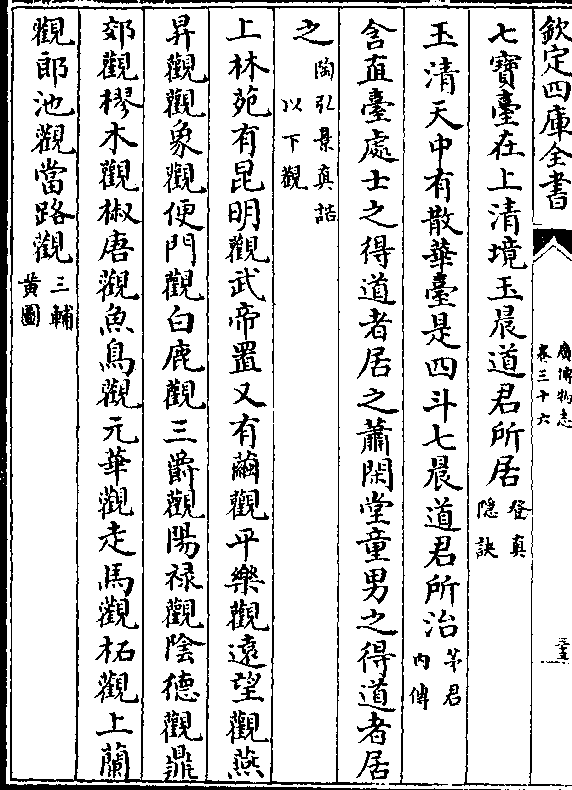 欽定四庫全書
廣博物志
卷三十六
七寶臺在上清境玉晨道君所居登真隐訣
玉清天中有散華臺是四斗七晨道君所治茅君内傳
含真臺處士之得道者居之蕭閑堂童男之得道者居
之陶弘景真誥以下觀
上林苑有昆明觀武帝置又有繭觀平樂觀遠望觀燕
昇觀觀象觀便門觀白鹿觀三爵觀陽禄觀陰德觀鼎
郊觀樛木觀椒唐觀魚鳥觀元華觀走馬觀柘觀上蘭
觀郎池觀當路觀三輔黃圖